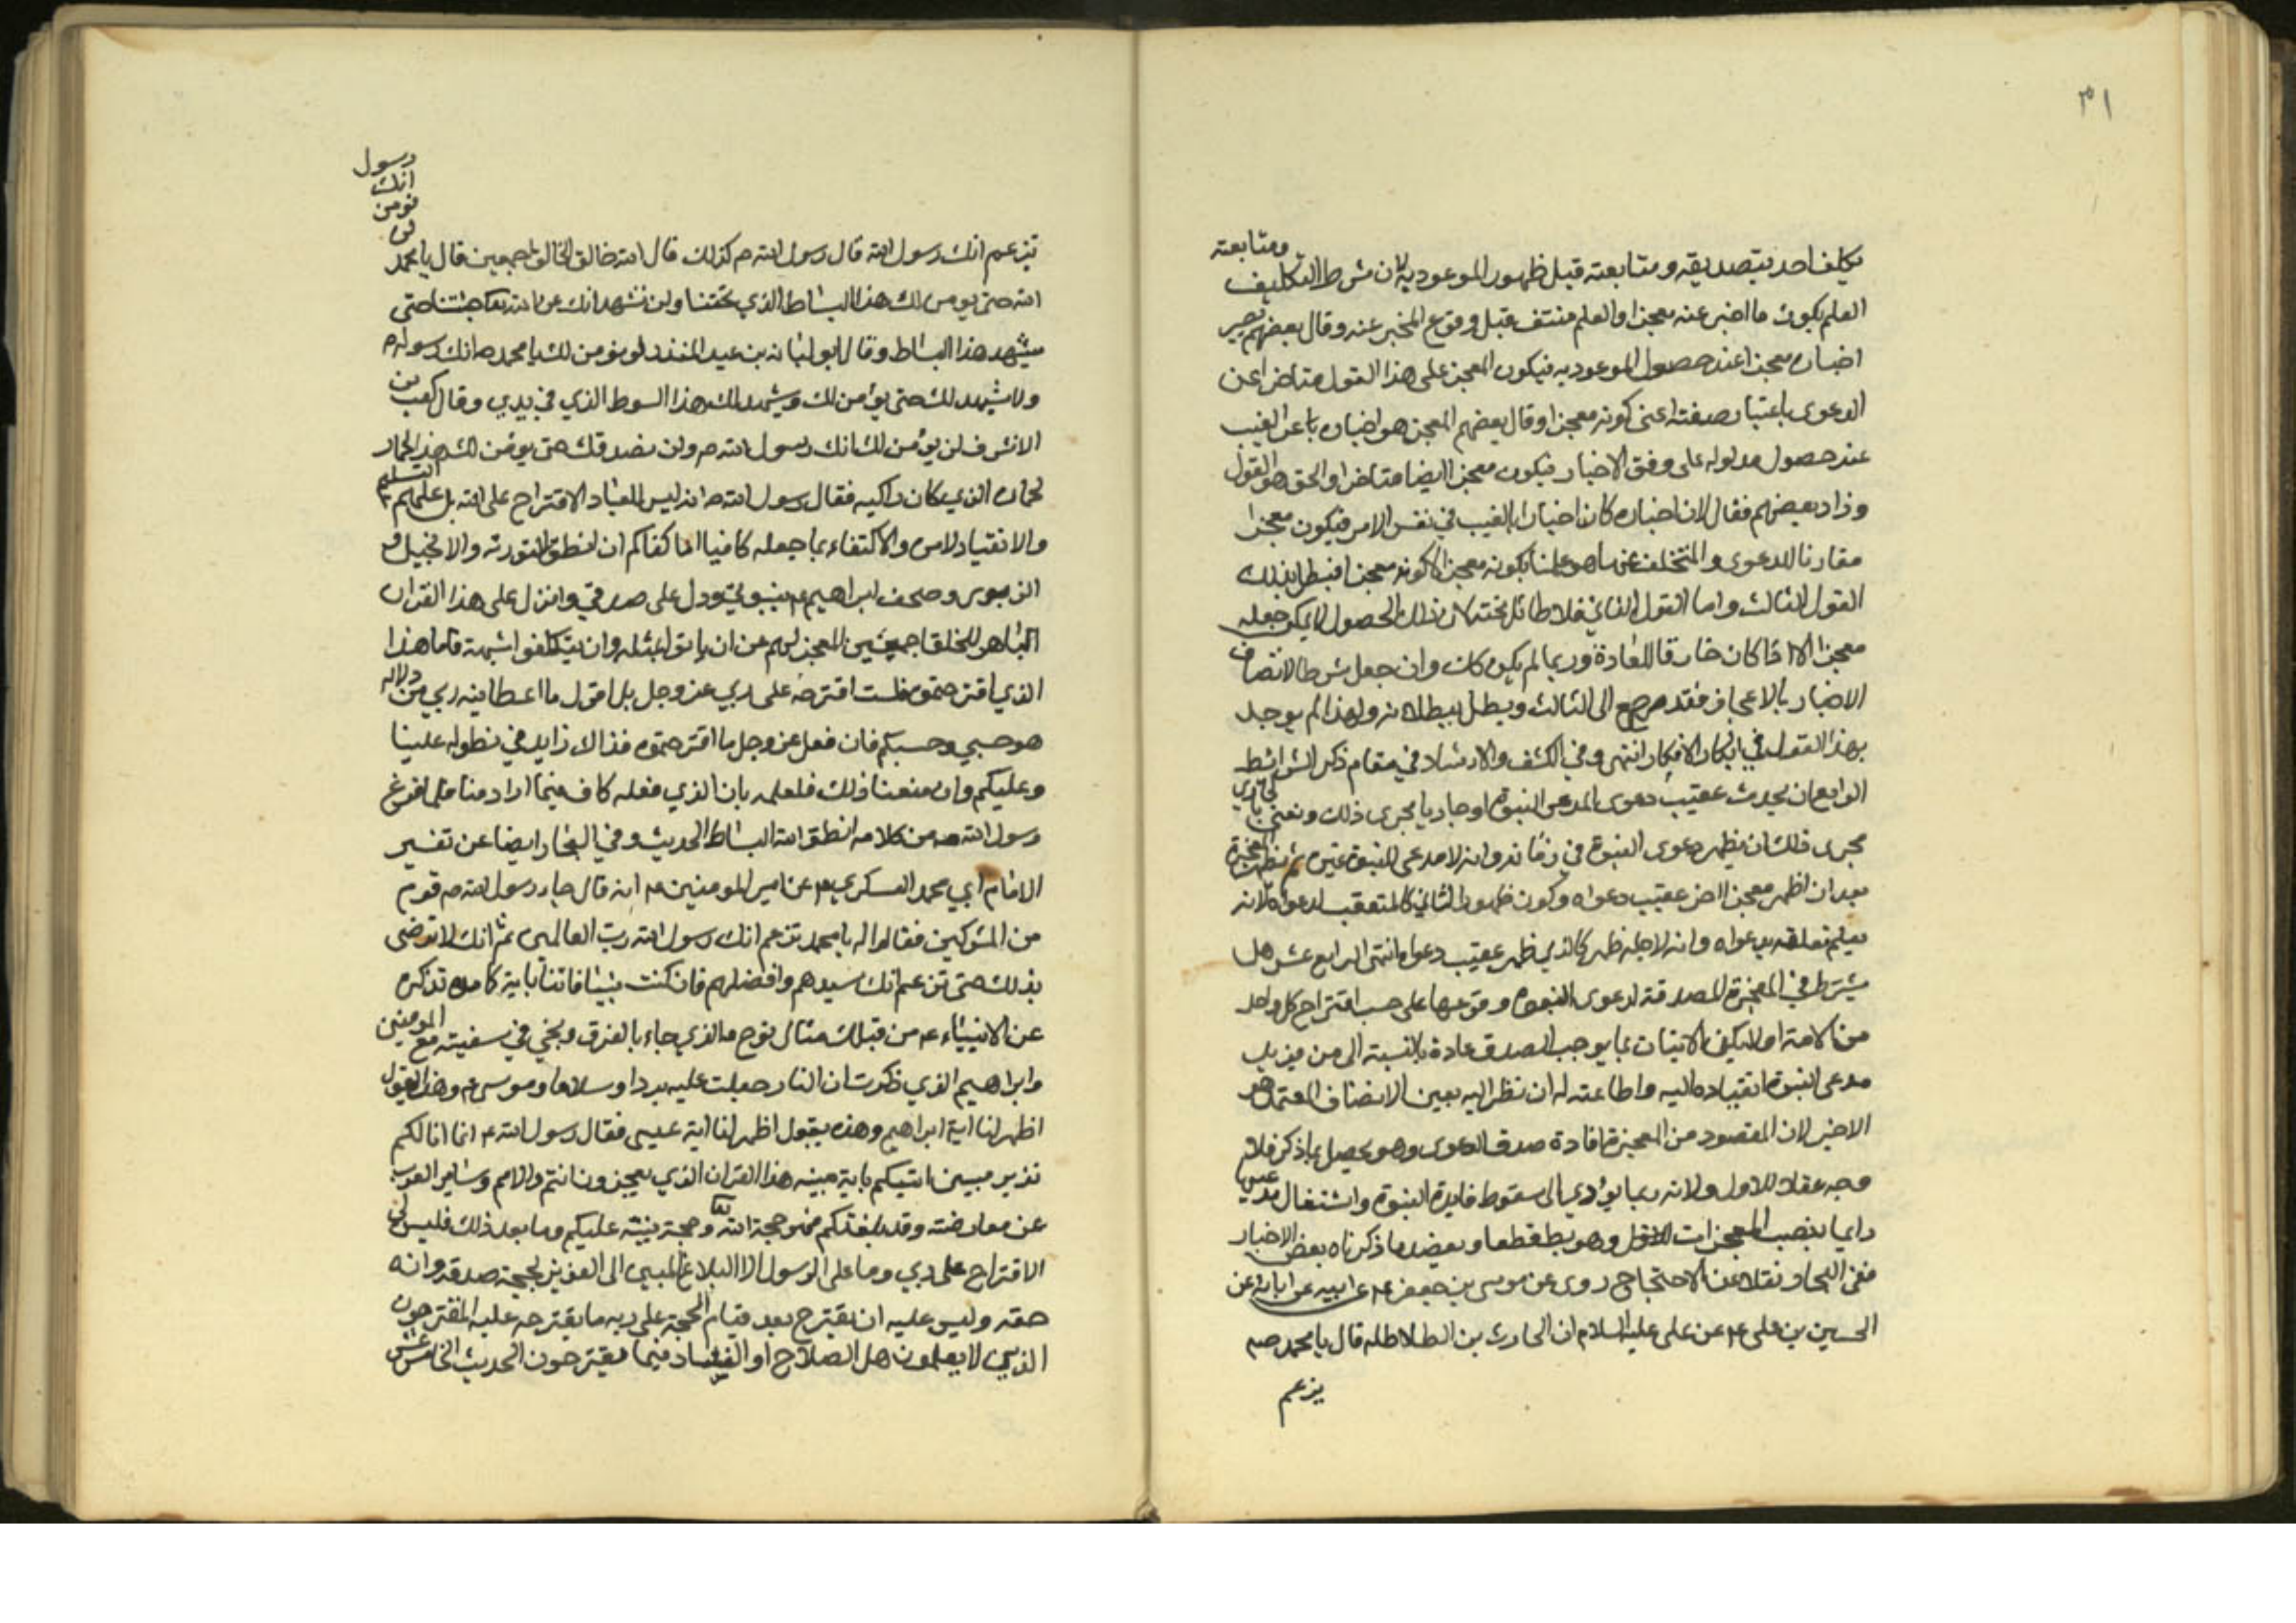 ٣١
يكلف احد بتصديقه ومتابعته قبل ظهور الموعود به لان شرط التكليف ومتابعته
العلم بكون ما اخبر عنه معجزا والعلم منتف قبل وقوع المخبر عنه وقال بعضهم يصير
اخباره معجزا عند حصول الموعود به فيكون المعجز على هذا القول متاخرا عن
الدعوى باعتبار صفته اعنى كونه معجزا وقال بعضهم المعجز هو اخباره باعن الغيب
عند حصول مدلوله على وفق الاخبار فيكون معجزا ايضا متاخرا والحق هو القول
وزاد بعضهم فقال لان اخباره كان اخبارا بالغيب في نفس الامر فيكون معجزا
مقارنا للدعوى والمتخلف عنها هو علمنا بكونه معجزا لا كونه معجزا فبطل بذلك
القول الثالث واما القول الثاني فلا طائل تحته لان ذلك الحصول لا يمكن جعله
معجزا الا اذا كان خارقا للعادة وربما لم يكن كان وان جعل شرطا لاتصاف
الاخبار بالاعجاز فقد رجع الى الثالث ويبطل ببطلانه ولهذا لم يوجد
بهذا القول في ابكار الافكار انتهى وفي الكشف والارشاد في مقام ذكر الشرائط
الرابع ان يحدث عقيب دعوى المدعي النبوة او جاريا مجرى ذلك ونعني بالجاري
مجرى ذلك ان يظهر دعوى النبوة في زمانه وانه لا مدعي للنبوة غيره ثم يظهر المعجزة
بعد ان اظهر معجزا اخر عقيب دعواه وكون ظهور الثاني كالمتعقب لدعواه لانه
يعلم تعلقه بدعواه وانه لاجله ظهر كالذي ظهر عقيب دعواه انتهى الرابع عشر هل
يشترط في المعجزة المصدقة لدعوى النبوة وقوعها على حسب اقتراح كل واحد
من الامة او لا يكفي الاتيان بما يوجب الصدق عادة بالنسبة الى من يريد
مدعى النبوة انقياده اليه واطاعته له ان نظر اليه بعين الانصاف المعتمد هو
الاخير لان المقصود من المعجزة افادة صدق الدعوى وهو يحصل بما ذكر فلا
وجه عقلا للاول ولانه ربما يؤدي الى سقوط فايدة النبوة واشتغال مدعيها
دايما بنصب المعجزات وهو بط قطعا ويعضد ما ذكرناه بعض الاخبار
ففي البحار نقلا عن الاحتجاج روى عن موسى بن جعفر ع عن ابيه عن ابائه عن
الحسين بن علي ع عن علي عليه السلام ان الحارث بن الطلاطله قال يا محمد صم
يزعم
تزعم انك رسول الله قال رسول الله ص كذلك قال الله خالق الخالق اجمعين قال يا محمد لن نومن انك رسول
الله حتى يومن لك هذا البساط الذي تحتنا ولن نشهد انك عن الله بما جئتنا حتى
يشهد هذا البساط وقال ابو لبابة بن عبد المنذر لو نومن لك يا محمد ص انك رسوله م
ولا نشهد لك حتى يؤمن لك ويشهد لك هذا السوط الذي في يدي وقال كعب بن
الاشرف لن نؤمن لك انك رسول الله ص ولن نصدقك حتى يومن لك هذا الحمار
لحماره الذي كان راكبه فقال رسول الله ص انه ليس للعباد الاقتراح على الله بل عليهم التسليم
والانقياد لامره والاكتفاء بما جعله كافيا اما كفاكم ان انطق التورية والانجيل و
الزبور وصحف ابراهيم ع بنبوتي ودل على صدقي وانزل على هذا القران
الباهر للخلق اجمعين المعجز لهم عن ان ياتوا بمثله وان يتكلفوا شبهه فاما هذا
الذي اقترحتموه فلست اقترحه على ربي عز وجل بل اقول ما اعطانيه ربي من دلاله
هو حسبي وحسبكم فان فعل عز وجل ما اقترحتموه فذا لا زايد في تطوله علينا
وعليكم وان منعنا ذلك فلعلمه بان الذي فعله كاف فيما اراد منا فلما فرغ
رسول الله ص من كلامه انطق الله البساط الحديث وفي البحار ايضا عن تفسير
الامام ابي محمد العسكري ع عن امير المومنين ع انه قال جاء رسول الله ص قوم
من المشركين فقالوا له يا محمد تزعم انك رسول الله رب العالمين ثم انك لا ترضى
بذلك حتى تزعم انك سيدهم وافضلهم فان كنت نبيا فاتنا باية كما تذكره
عن الانبياء ع من قبلك مثال نوح الذي جاء بالغرق ونجي في سفينته مع المومنين
وابراهيم الذي ذكرت ان النار جعلت عليه بردا وسلاما وموسى ع وهذا يقول
اظهر لنا اية ابراهيم وهذه يقول اظهر لنا اية عيسى فقال رسول الله ع انما انا لكم
نذير مبين اتيتكم باية مبينه هذا القران الذي تعجزون انتم والامم وساير العرب
عن معارضته وقد بلغتكم فهو حجة الله وحجة نبيه عليكم وما بعد ذلك فليس لي
الاقتراح على ربي وما على الرسول الا البلاغ المبين الى المقرين بحجة صدقه وانه
حقه وليس عليه ان يقترح بعد قيام الحجة على ربه ما يقترحه عليه المقترحون
الذين لا يعلمون هل الصلاح او الفساد فيما يقترحون الحديث الخامس عشر